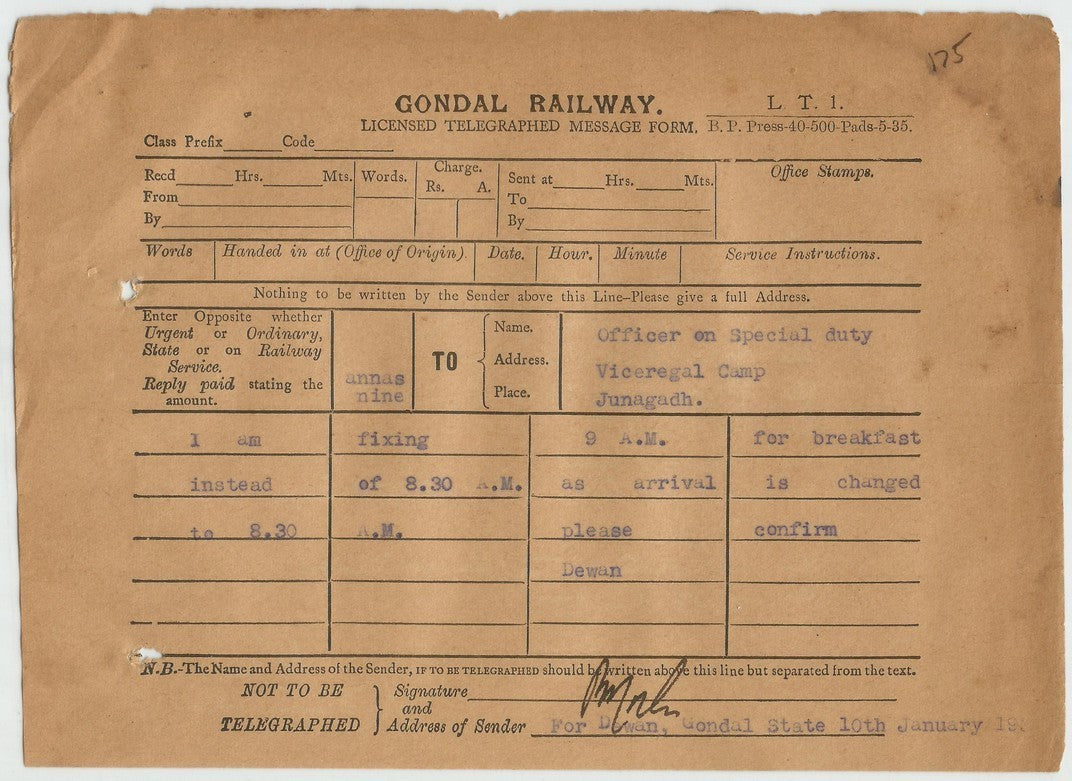 175
GONDAL RAILWAY.
L. T. 1.
LICENSED TELEGRAPHED MESSAGE FORM. B. P. Press-40-500-Pads-5-35.
Class Prefix Code
Recd Hrs. Mts. Words. Charge. Sent at Hrs. Mts. Office Stamps.
Rs. A.
From To
By By
Words Handed in at (Office of Origin). Date. Hour. Minute Service Instructions.
Nothing to be written by the Sender above this Line-Please give a full Address.
Enter Opposite whether
Urgent or Ordinary,
State or on Railway
Service.
Reply paid stating the
amount.
annas
nine
TO
Name.
Address.
Place.
Officer on Special duty
Viceregal Camp
Junagadh.
I am fixing 9 A.M. for breakfast
instead of 8.30 A.M. as arrival is changed
to 8.30 A.M. please confirm
Dewan
N.B.-The Name and Address of the Sender, IF TO BE TELEGRAPHED should be written above this line but separated from the text.
NOT TO BE
TELEGRAPHED
Signature
and
Address of Sender
For Dewan, Gondal State 10th January 19